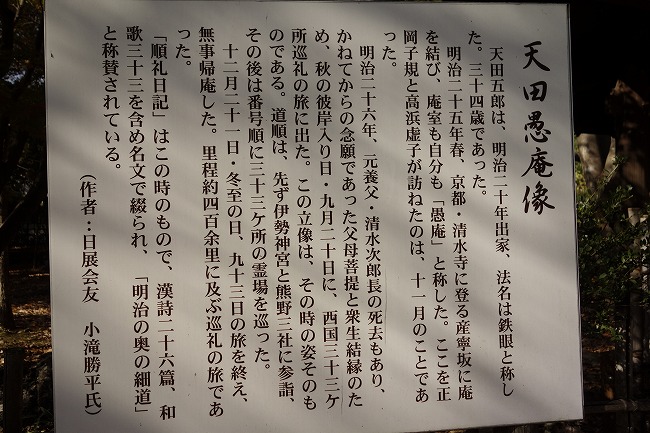 天田愚庵像
天田五郎は、明治二十年出家、法名は鉄眼と称し
た。三十四歳であった。
明治二十五年春、京都・清水寺に登る産寧坂に庵
を結び、庵室も自分も「愚庵」と称した。ここを正
岡子規と高浜虚子が訪ねたのは、十一月のことであ
った。
明治二十六年、元養父・清水次郎長の死去もあり、
かねてからの念願であった父母菩提と衆生結縁のた
め、秋の彼岸入り日・九月二十日に、西国三十三ケ
所巡礼の旅に出た。この立像は、その時の姿そのも
のである。道順は、先ず伊勢神宮と熊野三社に参詣、
その後は番号順に三十三ケ所の霊場を巡った。
十二月二十一日・冬至の日、九十三日の旅を終え、
無事帰庵した。里程約四百余里に及ぶ巡礼の旅であ
った。
「順礼日記」はこの時のもので、漢詩二十六篇、和
歌三十三を含め名文で綴られ、「明治の奥の細道」
と称賛されている。
(作者:日展会友 小滝勝平氏)